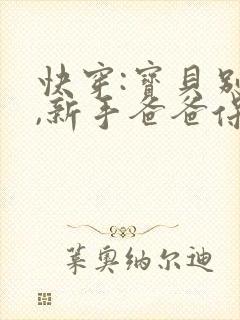 快穿:寶貝别
,新手爸爸保
莱奥纳尔迪